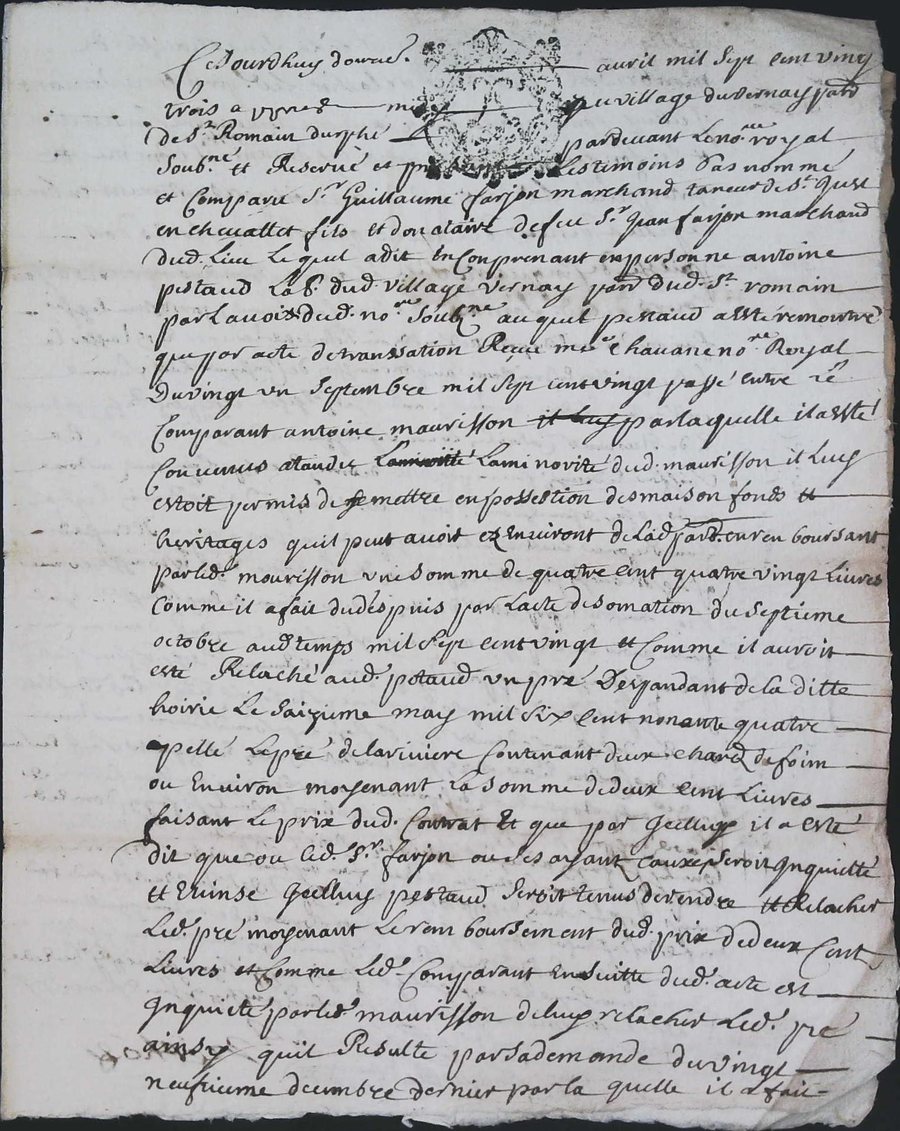 Ce Jourdhuy douze avril mil sept cent ving
trois a pnes mi au village du vernay parr
de St Romain durphé pardevant le no.re royal
soub.né et Reservé et les timoins bas nommé
et Comparu Sr Guillaume farjon marchand taneur de St Just
en chevallet fils et donataire de feu Sr Jean farjon marchand
dud. Lieu Le quel a dit En Conprenant en personne antoine
pestaud Lab. dud. village vernay parr dud. St romain
par La voix dud. no.re soub.né au quel pestaud a esté remontré
que par acte de transsation Reçue me Chavane no.re Royal
du vingt un septembre mil sept cent vingt passé entre Le
Comparant antoine maurisson par laquelle il a esté
Convenus atandut La minorité dud. maurisson il Luy
estoit permis de se mettre en possestion des maison fonds et
heritages quil peut avoir Es Environt de Lad. parr. en ren boursant
par led. mourisson une somme de quatre cent quatre vingt Livres
Comme il a fait du despuis par L'acte de somation du septieme
octobre aud. temps mil sept cent vingt et Comme il auroit
esté Relaché aud. pestaud un pré Despandant de la ditte
hoirie Le saizieme may mil six cent nonante quatre
pellé Le pré de la riviere Contenant deux chard de foim
ou Environ moyenant La somme de deux cent Livres
faisant Le prix dud. Contrat Et que par Jcelluy il a esté
dit que ou led. Sr farjon ou des ayant cause seroit Jnquietté
et Evinsé Jcelluy pestaud seroit tenus de rendre et Relacher
Led. pré moyenant Le ren boursement dud. prix de deux Cent
Livres et Comme Led. Comparant En suitte dud. acte est
Jnquieté par led. maurisson de luy relacher Led. pré
ainsy quil Resulte par sa demande du vingt
neufvieme decembre dernier par la quelle il a fait